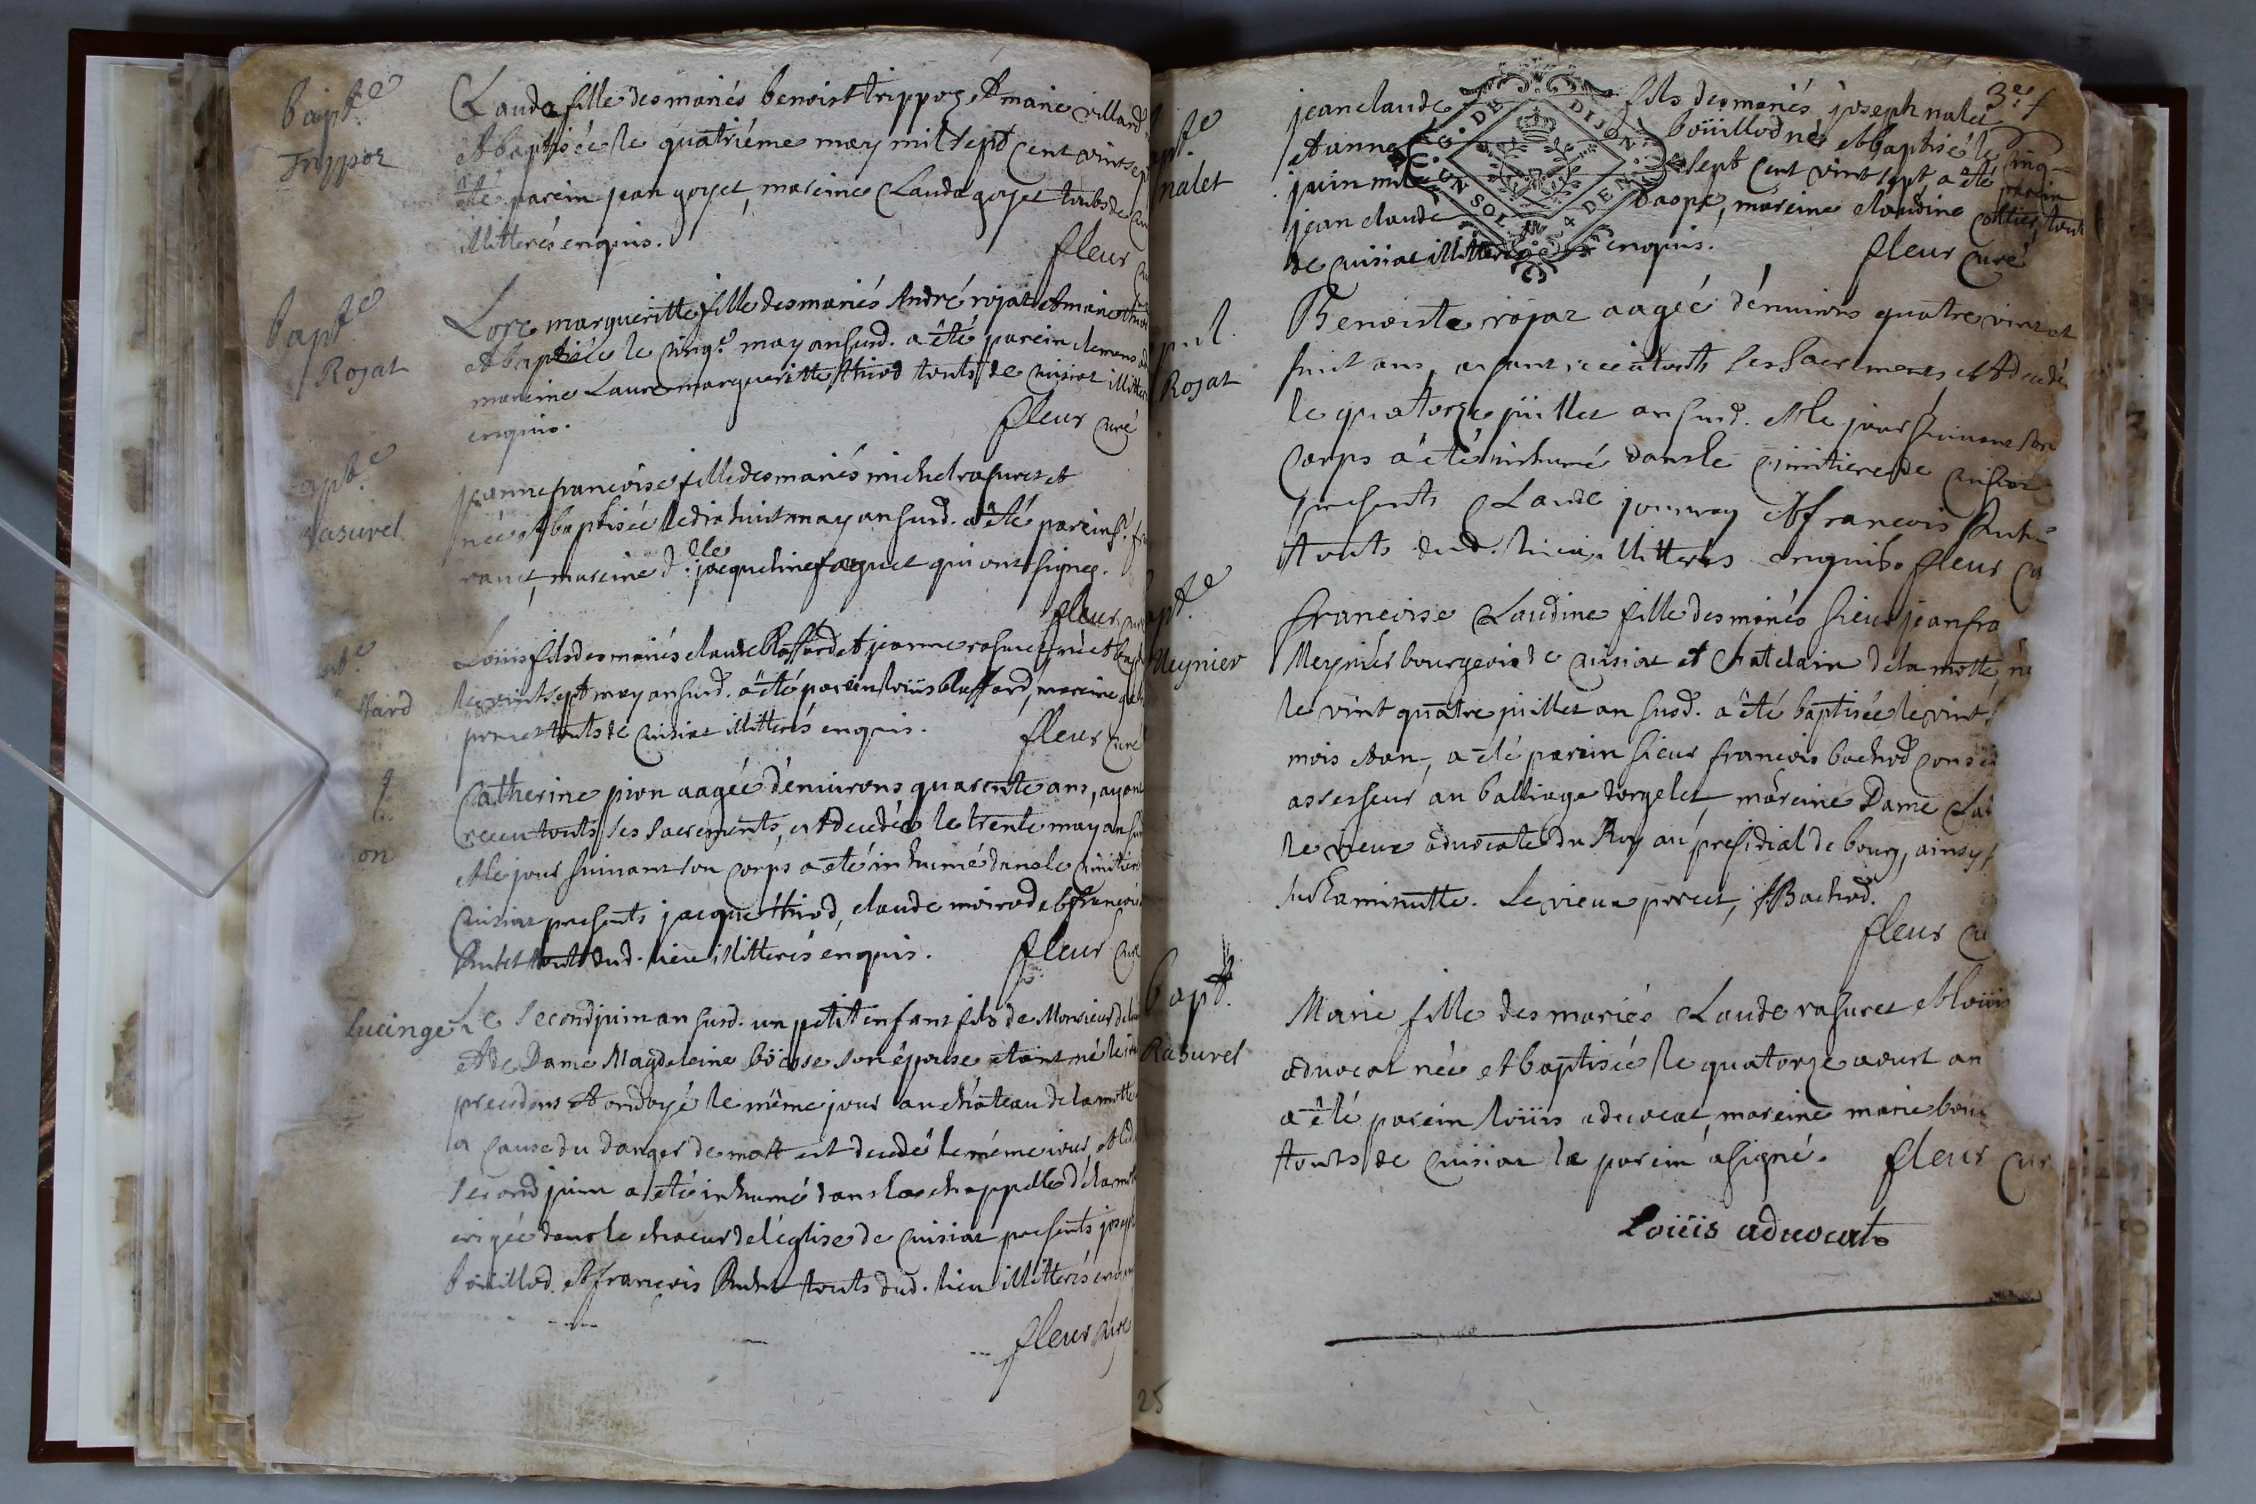 bapt.e
Trippoz
Clauda fille des mariés benoist trippoz et marie villard
et baptisée le quatriéme may mil sept cent vint sept
été parein jean goyet, mareine Clauda goyet touts de
illitterés enquis.
fleur
bapt.e
Rojat
Lore margueritte fille des mariés André rojat et marie
et baptisée le cinq.e may an susd. a été parein clemens
mareine Laure margueritte thiod touts de cuisiat illitter
enquis.
fleur curé
bapt.e
Rasurel
jeanne francoise fille des mariés michel rasurel et
née et baptisée le dix huit may an susd. a été parein s.r
mareine d.lle jacqueline faguet qui ont signez.
fleur
Loüis fils des mariés claude Blaffard et jeanne rasurel né et bapt
le vint sept may an susd. a été parein loüis blaffard, mareine
touts de cuisiat illitterés enquis.
fleur curé
on
Catherine pion aagée d'enuirons quarente ans, ayant
receu touts ses sacrements, est decedée le trente may an su
et le jour suiuant son corps a eté inhumé dans le cimitiere
cuisiat presents jacque thiod, claude moirod et francois
Rubet touts dud. lieu illitterés enquis.
fleur cure
lucinge
Le second juin an susd. un petit enfant fils de Monsieur de
et de Dame Magdeleine son épouse etant né le
precedent et ondoyé le même jour au château de la motte
a cause du danger de mort est decedé le méme iour, et led
second juin a eté inhumé dans la chappelle de la mot
erigée dans le choeur de l'église de cuisiat presents joseph
boüillod et francois Rubet touts dud. lieu illitterés enq
fleur cure
25
3.e f
bapt.e
nalet
jean claude fils des mariés joseph nalet
et anne boüillod né et baptisé le cinq
juin mil sept cent vint sept a été parein
jean claude mareine claudine touts
de cuisiat illitterés enquis.
fleur curé
G. DE DIJON
UN SOL 4 DEN.
Rojat
Benoiste rojat aagée d'enuirons quatre vint et
huit ans, ayant receu touts ses sacrements est decedé
le quatorze juillet an susd. et le jour suiuant son
corps a été inhumé dans le cimitiere de cuisiat
presents Claude et francois Rube
touts dud. lieu illitterés enquis. fleur cu
bapt.e
Meynier
francoise Claudine fille des mariés sieur jean fra
Meynier bourgeois de cuisiat et chatelain de la motte, né
le vint quatre juillet an susd. a été baptisée le vint
mois et an, a été parein sieur francois bachod
assesseur au balliage d'orgelet mareine Dame Cla
le vieux aduocate du Roy au presidial de bourg, ainsy
sur la minutte. Le vieux f. Bachod.
fleur cu
bapt.
Rasurel
Marie fille des mariés Claude rasurel et Loüis
aduocat née et baptisée le quatorze aoust an
a été parein loüis aduocat, mareine marie
touts de cuisiat le parein a signé.
fleur cur
Loüis aduocat